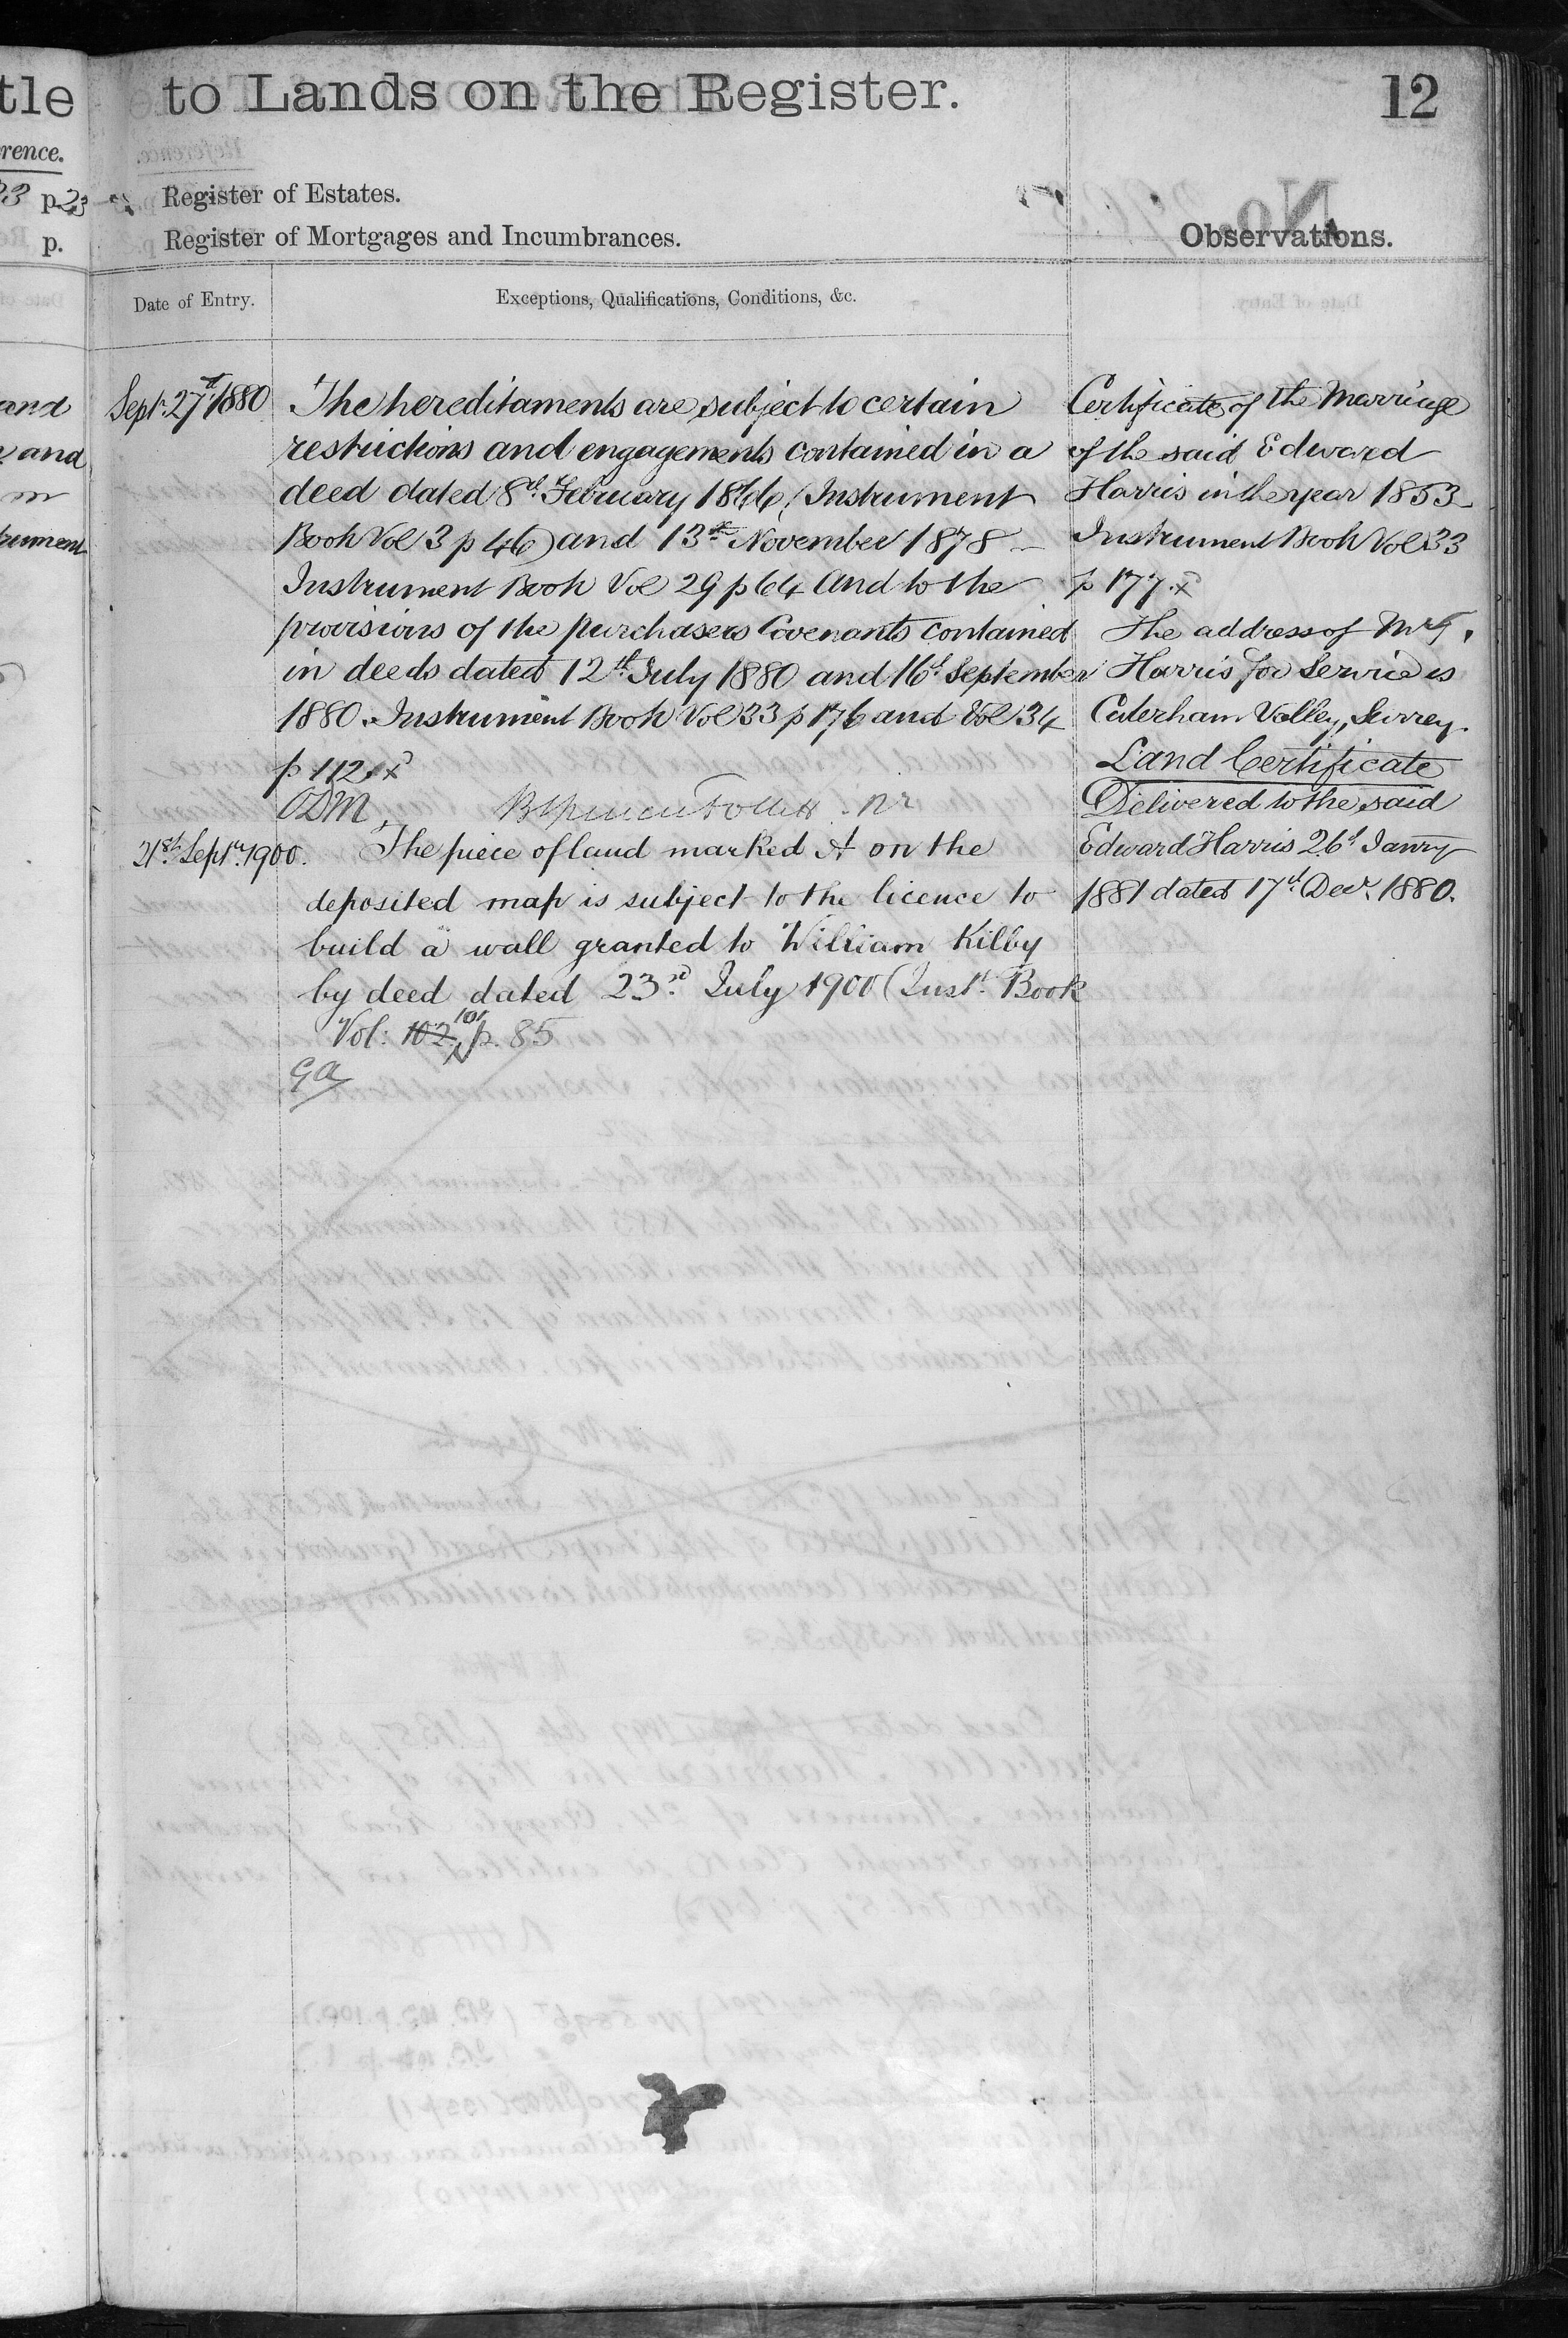 tle to Lands on the Register. 12
rence.
p. 23 Register of Estates.
p. Register of Mortgages and Incumbrances.
Observations.
Date of Entry. Exceptions, Qualifications, Conditions, &c.
Sept. 27th 1880 The hereditaments are subject to certain
restrictions and engagements contained in a
deed dated 8th February 1866 (Instrument
Book Vol 3 p 46) and 13th November 1878 –
Instrument Book Vol 29 p 64 and to the
provisions of the purchasers Covenants contained
in deeds dated 12th July 1880 and 16th September
1880. Instrument Book Vol 33 p 176 and Vol 34
p 112. x
ODM.
21st Septr. 1900. The piece of land marked A on the
deposited map is subject to the licence to
build a wall granted to William Kilby
by deed dated 23rd July 1900 (Inst. Book
Vol: 102 101 p. 85
GA
Certificate of the Marriage
of the said Edward
Harris in the year 1853
Instrument Book Vol 33
p 177. x
The address of Mrs.
Harris for service is
Caterham Valley, Surrey.
Land Certificate
Delivered to the said
Edward Harris 26th Janry
1881 dated 17th Decr. 1880.
and
and
m